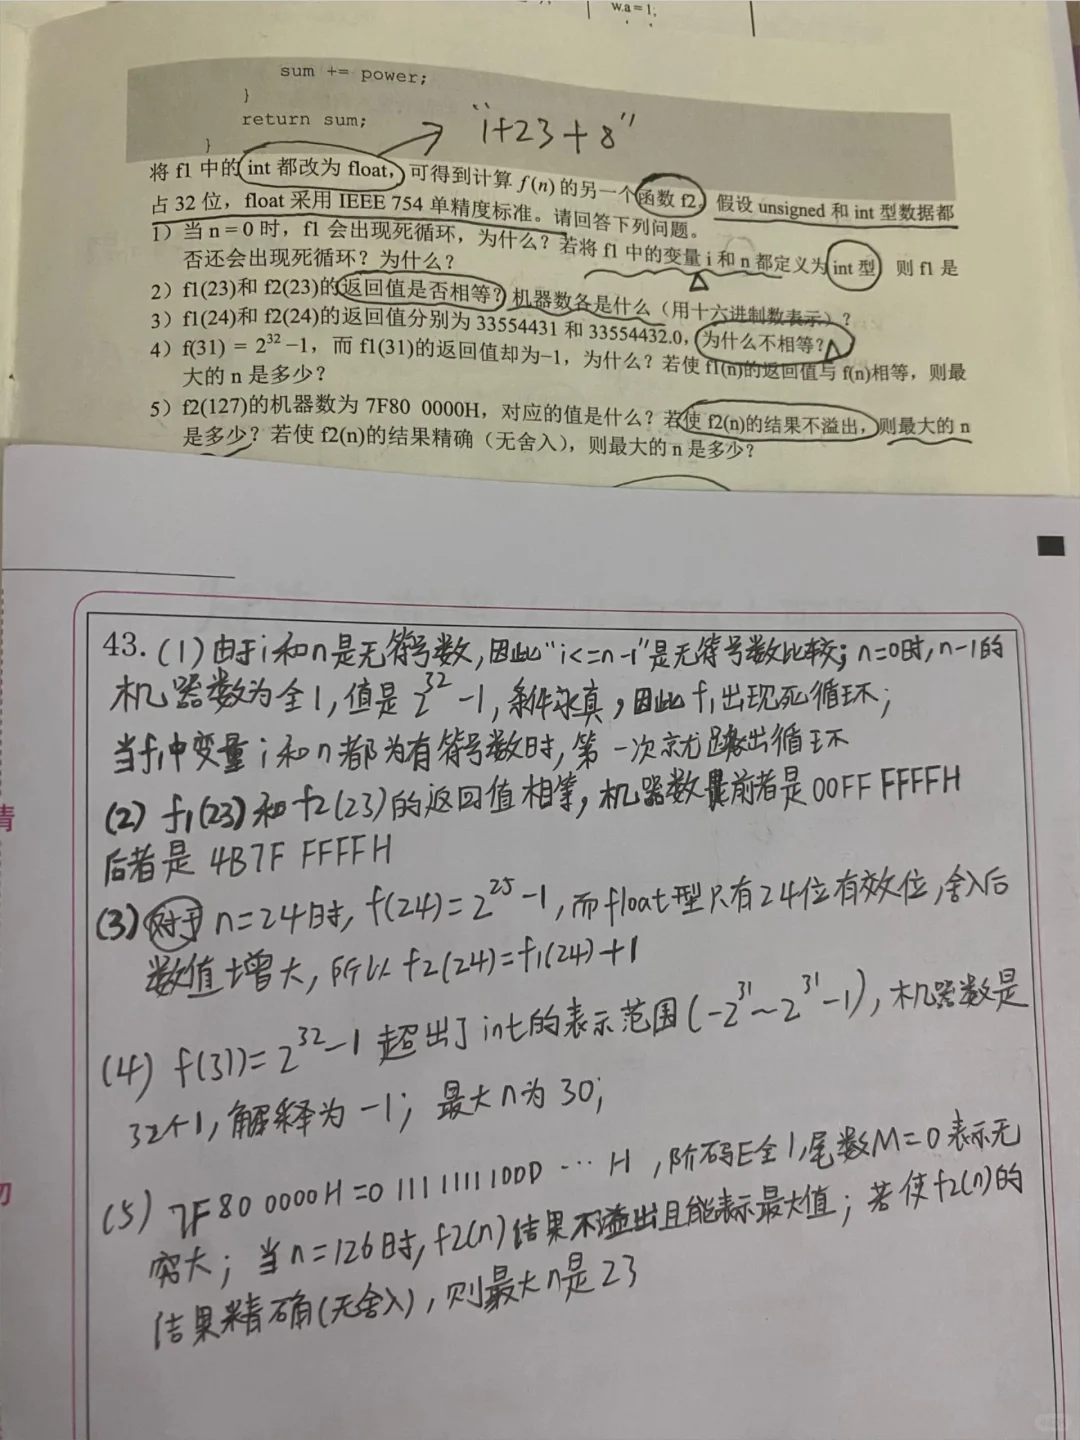 w.a = 1;
sum += power;
}
return sum;
}
"1+23+8"
将 f1 中的 int 都改为 float，可得到计算 f(n) 的另一个函数 f2。假设 unsigned 和 int 型数据都
占 32 位，float 采用 IEEE 754 单精度标准。请回答下列问题。
1）当 n = 0 时，f1 会出现死循环，为什么？若将 f1 中的变量 i 和 n 都定义为 int 型 则 f1 是
否还会出现死循环？为什么？
2）f1(23)和 f2(23)的返回值是否相等？机器数各是什么（用十六进制数表示）？
3）f1(24)和 f2(24)的返回值分别为 33554431 和 33554432.0，为什么不相等？
4）f(31) = 2³² −1，而 f1(31)的返回值却为−1，为什么？若使 f1(n)的返回值与 f(n)相等，则最
大的 n 是多少？
5）f2(127)的机器数为 7F80 0000H，对应的值是什么？若使 f2(n)的结果不溢出，则最大的 n
是多少？若使 f2(n)的结果精确（无舍入），则最大的 n 是多少？
43. (1) 由于i和n是无符号数，因此"i<=n-1"是无符号数比较；n=0时，n-1的
机器数为全1，值是2³²-1，条件永真，因此f1出现死循环；
当f1中变量i和n都为有符号数时，第一次就跳出循环
(2) f1(23)和f2(23)的返回值相等，机器数前者是00FF FFFFH
后者是4B7F FFFFH
(3) 对于n=24时，f(24)=2²⁵-1，而float型只有24位有效位，舍入后
数值增大，所以f2(24)=f1(24)+1
(4) f(31)=2³²-1超出了int的表示范围(-2³¹~2³¹-1)，机器数是
32个1，解释为-1；最大n为30；
(5) 7F80 0000H=0 11111111 000…H，阶码E全1，尾数M=0表示无
穷大；当n=126时，f2(n)结果不溢出且能表示最大值；若使f2(n)的
结果精确(无舍入)，则最大n是23